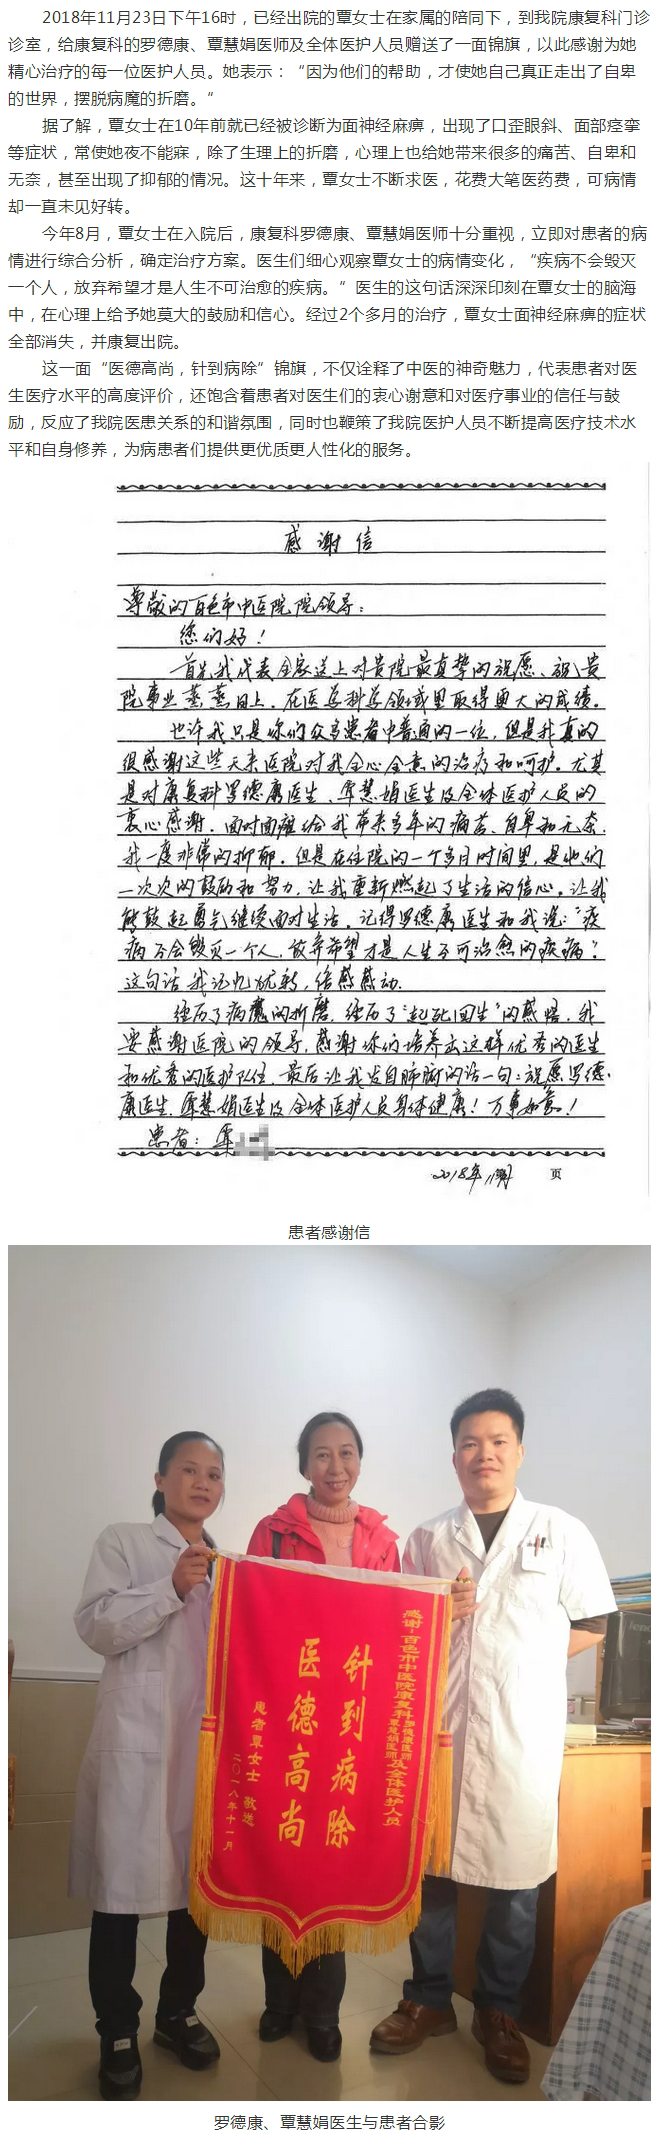 2018年11月23日下午16时，已经出院的覃女士在家属的陪同下，到我院康复科门诊
诊室，给康复科的罗德康、覃慧娟医师及全体医护人员赠送了一面锦旗，以此感谢为她
精心治疗的每一位医护人员。她表示：“因为他们的帮助，才使她自己真正走出了自卑
的世界，摆脱病魔的折磨。“
据了解，覃女士在10年前就已经被诊断为面神经麻痹，出现了口歪眼斜、面部痉挛
等症状，常使她夜不能寐，除了生理上的折磨，心理上也给她带来很多的痛苦、自卑和
无奈，甚至出现了抑郁的情况。这十年来，覃女士不断求医，花费大笔医药费，可病情
却一直未见好转。
今年8月，覃女士在入院后，康复科罗德康、覃慧娟医师十分重视，立即对患者的病
情进行综合分析，确定治疗方案。医生们细心观察覃女士的病情变化，“疾病不会毁灭
一个人，放弃希望才是人生不可治愈的疾病。”医生的这句话深深印刻在覃女士的脑海
中，在心理上给予她莫大的鼓励和信心。经过2个多月的治疗，覃女士面神经麻痹的症状
全部消失，并康复出院。
这一面“医德高尚，针到病除”锦旗，不仅诠释了中医的神奇魅力，代表患者对医
生医疗水平的高度评价，还饱含着患者对医生们的衷心谢意和对医疗事业的信任与鼓
励，反应了我院医患关系的和谐氛围，同时也鞭策了我院医护人员不断提高医疗技术水
平和自身修养，为病患者们提供更优质更人性化的服务。
感谢信
尊敬的百色市中医院院领导：
您们好！
首先我代表全家送上对贵院最真挚的祝愿、祝贵
院事业蒸蒸日上．在医学科学领域里取得更大的成绩。
也许我只是你们众多患者中普通的一位，但是我真的
很感谢这些天来医院对我全心全意的治疗和呵护。尤其
是对康复科罗德康医生、覃慧娟医生及全体医护人员的
衷心感谢．面对面瘫给我带来多年的痛苦、自卑和无奈．
我一度非常的抑郁．但是在住院的一个多月时间里，是他们
一次次的鼓励和努力，让我重新燃起了生活的信心．让我
能鼓起勇气继续面对生活．记得罗德康医生和我说：“疾
病不会毁灭一个人，放弃希望才是人生不可治愈的疾病”．
这句话我记忆犹新，倍感感动．
经历了病魔的折磨，经历了“起死回生”的感悟，我
要感谢医院的领导，感谢你们培养出这样优秀的医生
和优秀的医护队伍．最后让我发自肺腑的话一句：祝愿罗德
康医生．覃慧娟医生及全体医护人员身体健康！万事如意！
患者：覃
2018年11月 页
患者感谢信
感谢-百色市中医院康复科罗德康医师覃慧娟医师及全体医护人员
针到病除
医德高尚
患者覃女士 敬送
二〇一八年十一月
lenovo
罗德康、覃慧娟医生与患者合影